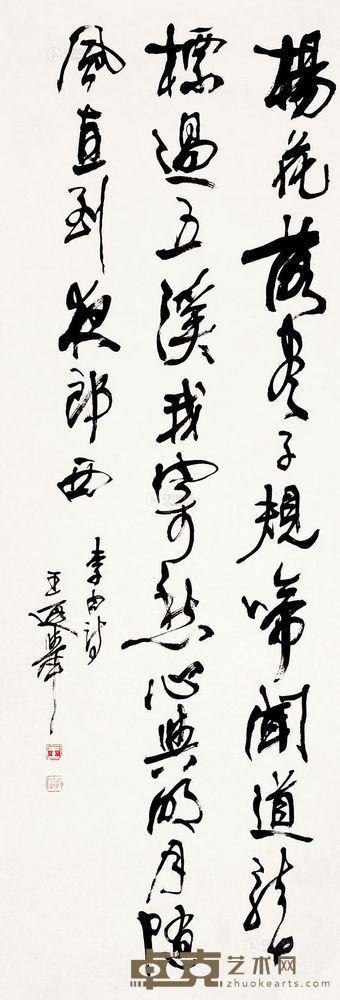 楊花落盡子規啼聞道龍
標過五溪我寄愁心與明月隨
風直到夜郎西
李白詩
王遐舉
卓克艺术网
www.zhuokearts.com